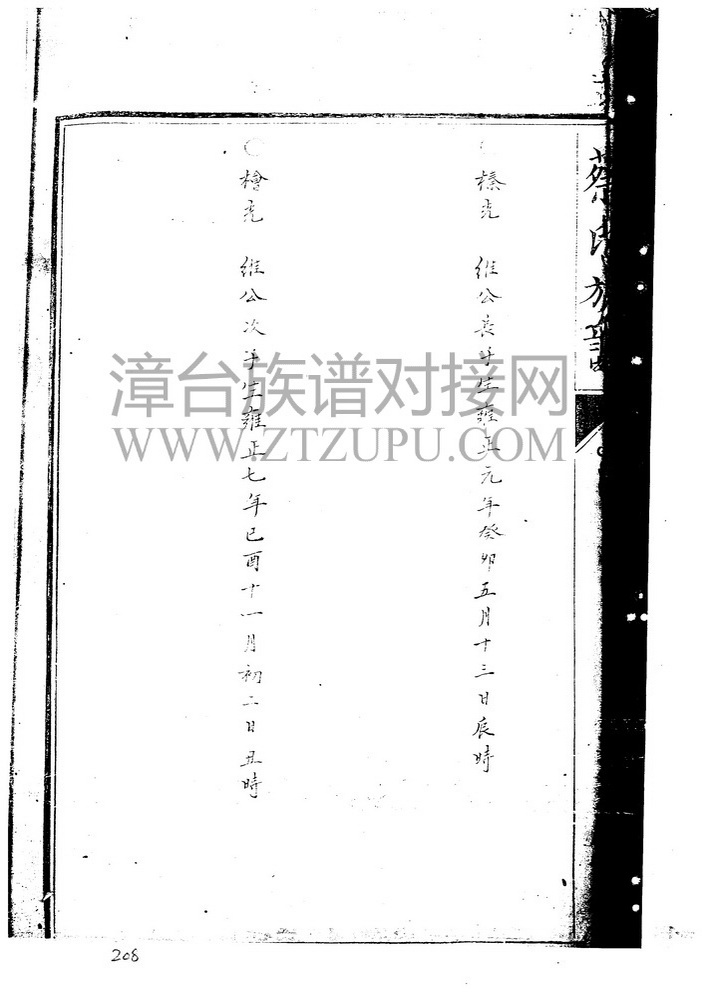 蔡氏族譜
榛光 維公長子生雍正元年癸卯五月十三日辰時
○檜光 維公次子生雍正七年己酉十一月初二日丑時
漳台族谱对接网
WWW.ZTZUPU.COM
208